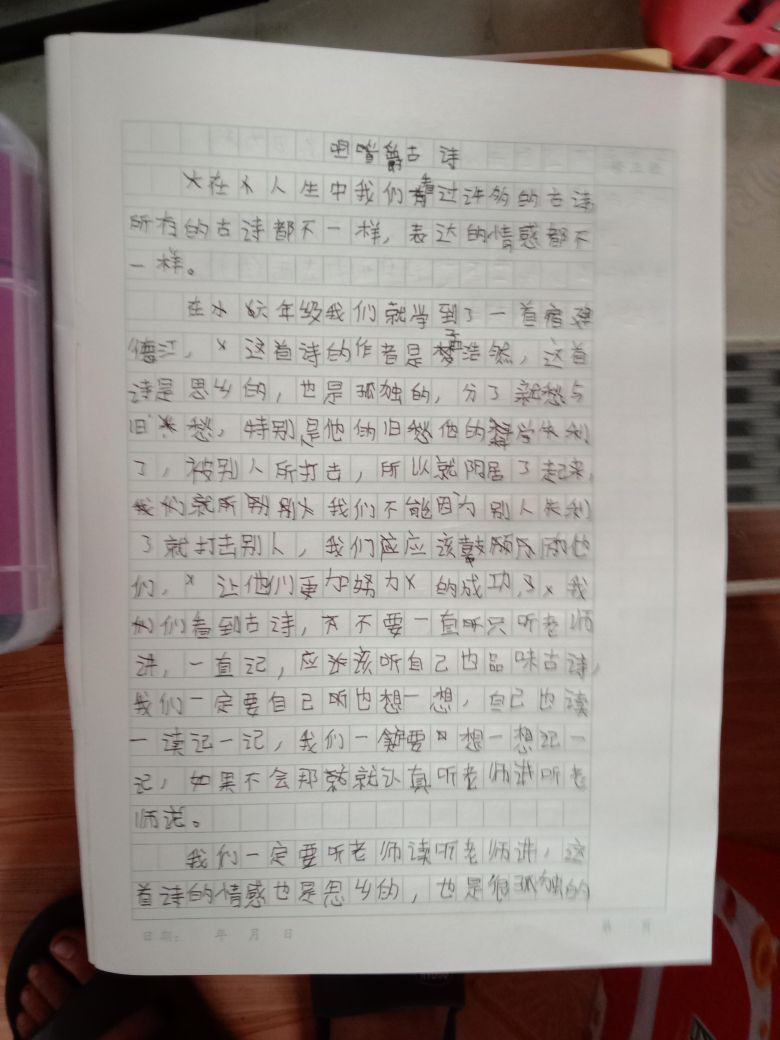 咀嚼古诗
在人生中我们看过许多的古诗
所有的古诗都不一样，表达的情感都不
一样。
在六年级我们就学到了一首宿建
德江，这首诗的作者是孟浩然，这首
诗是思乡的，也是孤独的，分了新愁与
旧愁，特别是他的旧愁他的科学失利
了，被别人所打击，所以就阴居了起来，
我们就所别我们不能因为别人失利
了就打击别人，我们应应该鼓励他
们，让他们更加努力的成功，我
们看到古诗，不要一直听只听老师
讲，一直记，应该听自己也品味古诗，
我们一定要自己听也想一想，自己也读
一读记一记，我们一定要想一想记一
记，如果不会那就认真听老师讲听老
师说。
我们一定要听老师读听老师讲，这
首诗的情感也是思乡的，也是很孤独的
日期： 年 月 日